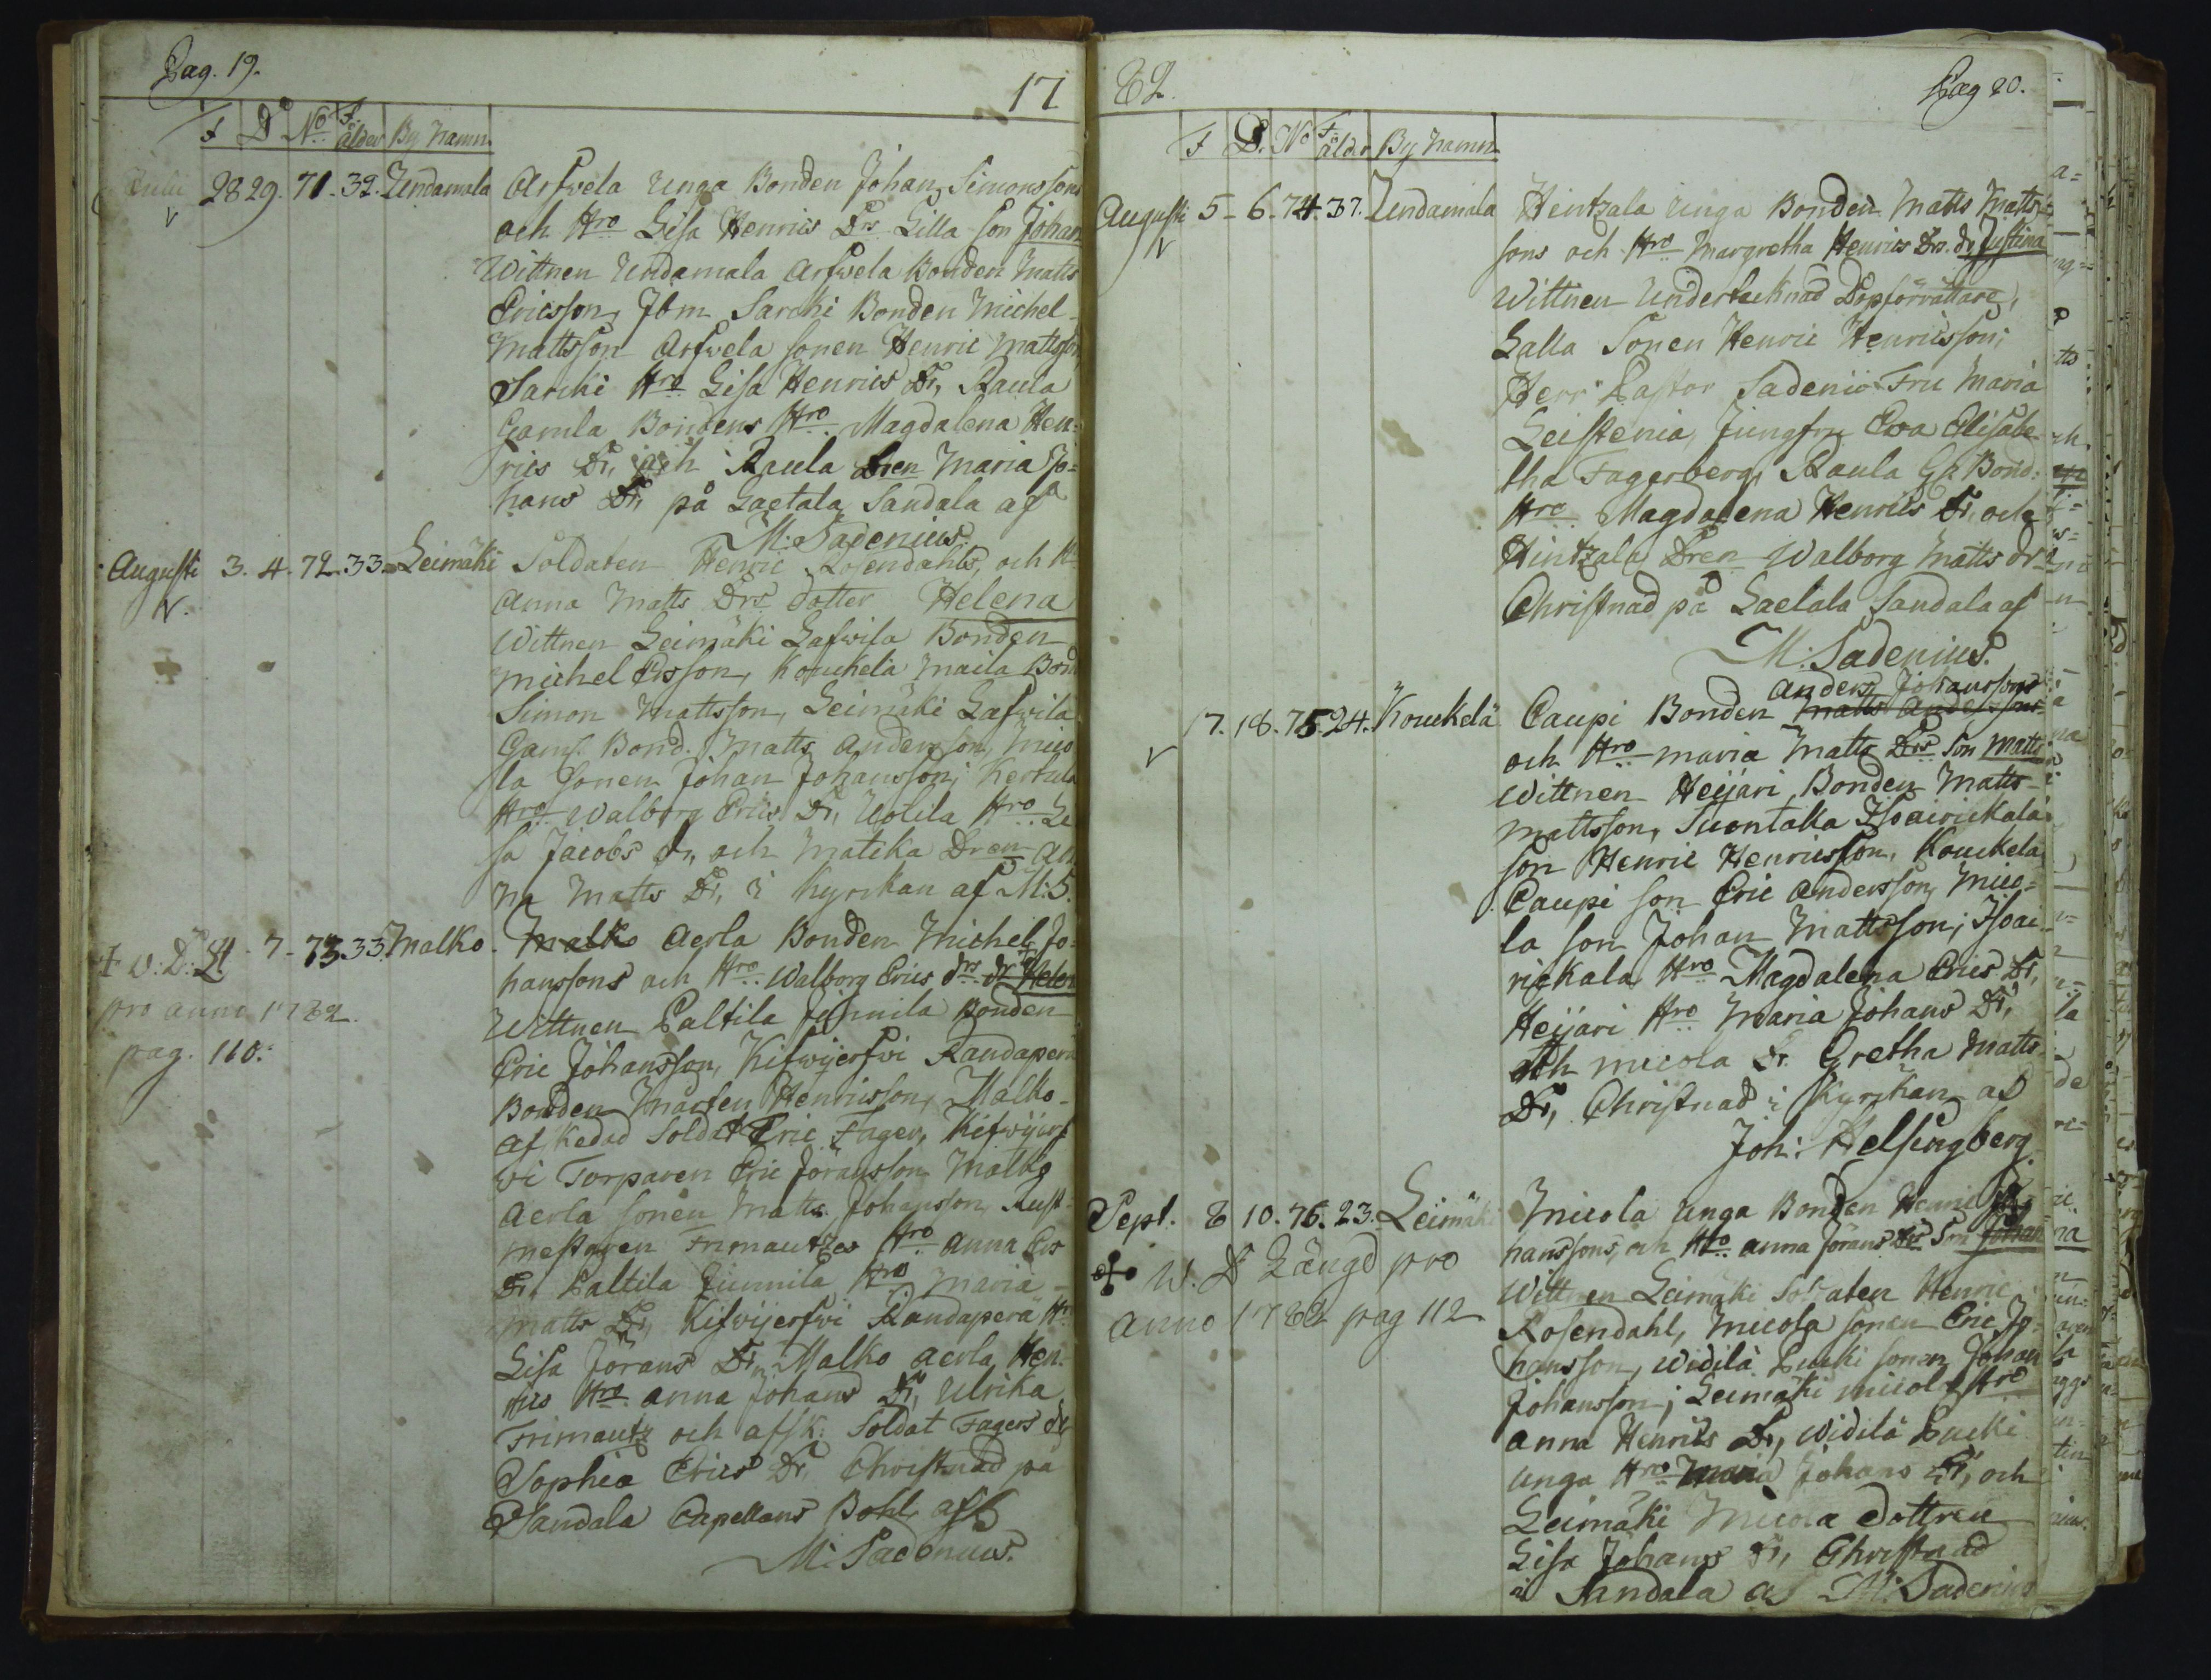 Pag. 19.
17
F D No F. ålder By Namn.
Julii 28 29. 71. 32. Undamala Arfvela unga Bonden Johan Simonssons
och Hro Lisa Henrics Drs Lilla son Johan
Wittnen Undamala Arfvela Bonden Matts
Ericsson, Jbm Sarcki Bonden Michel
Mattsson Arfvela sonen Henric Mattsson,
Sarcki Hro Lisa Henrics Dr, Raula
Gamla Bondens Hro Magdalena Hen-
rics Dr, och Raula Dren Maria Jo-
hans Dr, på Laetala Sandala af
M: Sadenius.
Augusti 3. 4. 72. 33. Leimäki Soldaten Henric Rosendahls, och H
Anna Matts Drs dotter Helena
Wittnen Leimäki Lafwila Bonden
Michel Ersson, Kouckela Maila Bond
Simon Mattsson, Leimäki Lafwila
Gaml. Bond. Matts Andersson, Mico
la Sonen Johan Johansson; Kertula
Hro Walborg Erics Dr, Uolila Hro Li
sa Jacobs dr, och Matcka Dren An
na Matts Dr, i Kyrckan af M: S.
7 - 73. 33. Malko. Malko Aerla Bonden Michel Jo-
hanssons och Hro Walborg Erics drs dr Helen
pro anno 1782.
pag. 110.
Wittnen Paltila Junnila Bonden
Eric Johansson, Kifwijerfwi Randaperä
Bonden Mårten Henricsson, Malko
afskedad Soldat Eric Fager, Kifwijerf
wi Torparen Eric Jöransson Malko
Aerla sonen Matts Johansson, Rust-
mestaren Frimautzes Hro Anna Ers
Dr, Paltila Junnila Hro Maria
Matts Dr, Kifwijerfwi Randaperä Hr
Lisa Jörans Dr, Malko Aerla Hen-
rics Hro Anna Johans Dr, Ulrika
Frimautz och afsk. Soldat Fagers dr
Sophia Erics Dr, Christnad på
Sandala Capellans Bohl af
M: Sadenius.
82.
Pag 20.
F D. No F ålder By Namn
Augusti 5 - 6. 74. 37. Undamala Heintzala unga Bonden Matts Matts-
sons och Hro Margretha Henrics Drs. dr Justina
Wittnen Undertecknad Dopförrättare,
Lalla Sonen Henric Henricsson;
Herr Pastor Sadenii Fru Maria
Leistenia, Jungfru Ewa Elisabe
tha Fagerberg, Raula Gl. Bond:
Hro Magdalena Henrics Dr, och
Hintzala Dren Walborg Matts dr
Christnad på Laetala Sandala af
M: Sadenius.
Anders Johanssons
17. 18. 75. 24. Kouckelä Caupi Bonden Matts Anderssons
och Hro Maria Matts Drs Son Matts
Wittnen Heijari Bonden Matts
Mattsson, Suontaka Isoairickala
Son Henric Henricsson, Kouckela
Caupi son Eric Andersson, Mico-
la son Johan Mattsson; Isoai
rickala Hro Magdalena Erics Dr,
Heijari Hro Maria Johans Dr,
och Micola Dr. Gretha Matts
Dr, Christnad i Kyrckan af
Joh: Helsingberg
Sept. 8 10. 76. 23. Leimäki Micola unga Bonden Henric Jo-
hanssons, och Hro Anna Jörans Drs Son Johan
W. D Längd pro
anno 1782 pag 112
Wittnen Leimäki Soldaten Henric
Rosendahl, Micola sonen Eric Jo-
hansson, Widilä Pucki sonen Johan
Johansson; Leimäki Micola Hro
Anna Henrics Dr, Widilä Pucki
unga Hro Maria Johans Dr, och
Leimäki Micola dottren
Lisa Johans Dr, Christnad
i Sandala af M: Sadenius